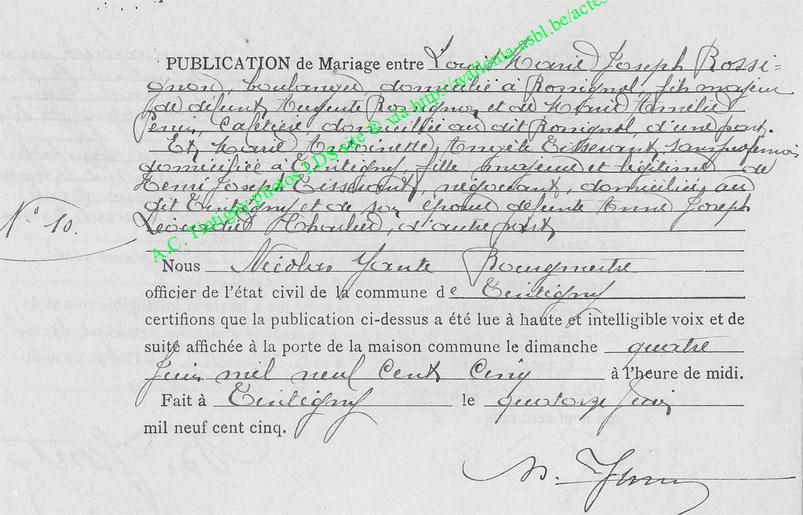 PUBLICATION de Mariage entre Louis Marie Joseph Rossi-
gnon, boulanger, domicilié à Rossignol, fils majeur
de défunt Auguste Rossignon et de Marie Amélie
cafetière domiciliée au dit Rossignol, d'une part.
Et Marie Antoinette Angèle Tissevant, sans profession
domiciliée à Tintigny, fille majeure et légitime de
Henri Joseph Tissevant, négociant, domiciliés au
dit Tintigny et de son épouse défunte Anne Joseph
d'autre part
N° 10.
Nous Nicolas Bourgmestre
officier de l'état civil de la commune de Tintigny
certifions que la publication ci-dessus a été lue à haute et intelligible voix et de
suite affichée à la porte de la maison commune le dimanche quatre
Juin mil neuf cent cinq à l'heure de midi.
Fait à Tintigny le quatorze Juin
mil neuf cent cinq.
A.C. Tintigny photos J.D's site © via http://wallonia-asbl.be/actes